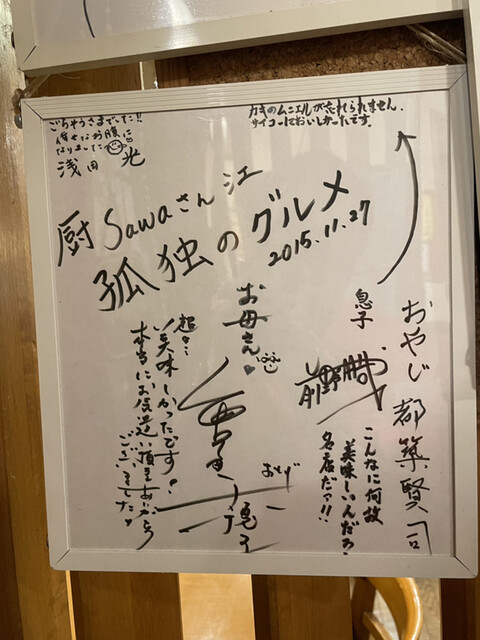 ごちそうさまでした!!
倖せなお腹に
なりました
浅田 光
カキのムニエルが忘れられません。
サイコーにおいしかったです。
厨 Sawaさん江
孤独のグルメ
2015.11.27
お母さん
超々…
美味しかったです!
本当にお気遣い頂きありがとう
ございました
息子
おやじ 都築賢司
こんなに何故
美味しいんだろ
名店だァ!!